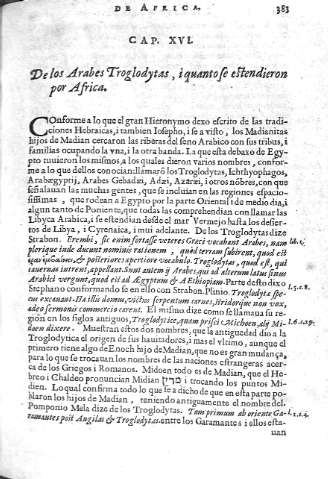 DE AFRICA. 383
CAP. XVI.
De los Arabes Troglodytas, i quanto se estendieron
por Africa.
COnforme a lo que el gran Hieronymo dexo escrito de las tradi-
ciones Hebraicas, i tambien Iosepho, i se a visto, los Madianitas
hijos de Madian cercaron las riberas del seno Arabico con sus tribus, i
familias ocupando la vna, i la otra banda. La que esta debaxo de Egy-
pto tuuieron los mismos, a los quales dieron varios nombres, confor-
me a lo que dellos conocian: llamarõ los Troglodytas, Ichthyophagos,
Arabægyptij, Arabes Gebadzi, Adzi, Azarzi, i otros nõbres, con que
señalauan las muchas gentes, que se incluian en las regiones espacio-
sissimas, que rodean a Egypto por la parte Oriental i de medio dia, i
algun tanto de Poniente, que todas las comprehendian con llamar las
Libyca Arabia, i se estendian desde el mar Vermejo hasta los desier-
tos de Libya, i Cyrenaica, i mui adelante. De los Troglodytas dize
Strabon. Erembi, sic enim fortasse veteres Græci vocabant Arabes, nam
plerique inde ducunt nominis rationem, quod terram subirent, quod
& posteriores apertiore vocabulo Troglodytas, quod est, qui
cauernas intrent, appellant. Sunt autem ij Arabes, qui ad alterum latus sinus
Arabici vergunt, quod est ad Ægyptum & Æthiopiam. Parte desto dixo
Stephano conformando se en ello con Strabon. Plinio. Troglodytæ spe-
cus excauant. Hæ illis domus, victus serpentum carnes, stridorque non vox,
adeo sermonis commercio carent. El mismo dize como se llamaua su re-
gión en los siglos antiguos, Troglodytice, quam prisci Michoen, alij Mi-
doen dixere. Muestran estos dos nombres, que la antiguedad dio a la
Troglodytica el origen de sus hauitadores, i mas el vltimo, aunque el
primero tiene algo de Enoch hijo de Madian, que no es gran mudança,
para lo que se trocauan nombres de las naciones estrangeras acer-
ca de los Griegos i Romanos. Midoen todo es de Madian, que el He-
breo i Chaldeo pronuncian Midian מדין i trocando los puntos Mi-
dien. Lo qual confirma todo lo que se a dicho de que en esta parte po-
blaron los hijos de Madian, teniendo antiguamente el nombre del.
Pomponio Mela dize de los Troglodytas. Tum primum ab oriente Ga-
ramantes post Augilæ & Troglodytæ. entre los Garamantes i ellos esta-
uan